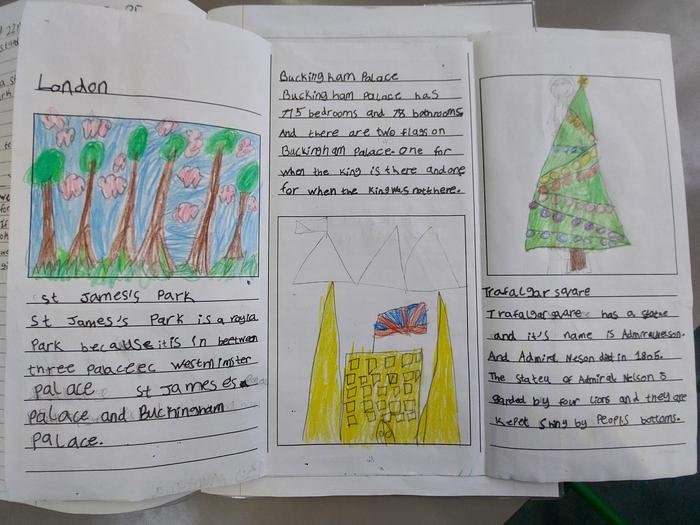 London
st James's Park
St James's Park is a rayla
Park because it is in beetwen
three Palaceec westminster
palace St James es
palace and Buckingham
Palace.
Bucking ham Palace
Bucking ham Palace has
775 bedrooms and 78 bathrooms.
And there are two flags on
Buckingham Palace. one for
when the King is there and one
for when the King was not there.
Trafalgar sqvare
Trafalgar sqvare has a statue
and it's name is Admiral Nelson.
And Admiral Neson
in 1805.
The Statey of Admiral Nelson is
garded by four Lions and they are
Kepet by Peopls bottoms.